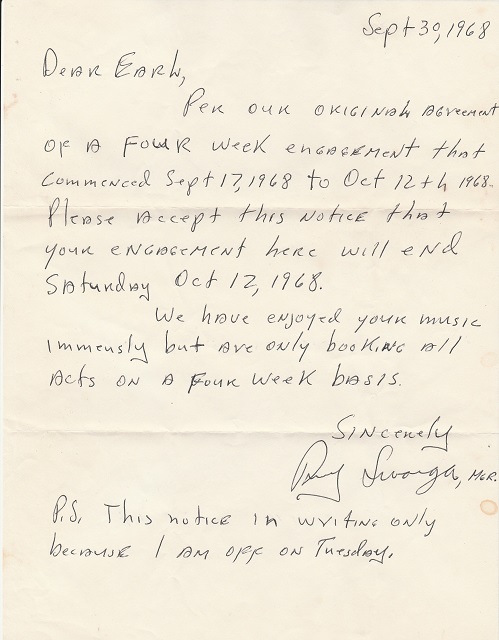 Sept 30, 1968
Dear Earl,
Per our original agreement
of a four week engagement that
commenced Sept 17, 1968 to Oct 12th 1968.
Please accept this notice that
your engagement here will end
Saturday Oct 12, 1968.
We have enjoyed your music
immensly but are only booking all
acts on a four week basis.
Sincerely
Mgr.
P.S. This notice in writing only
because I am off on Tuesday.